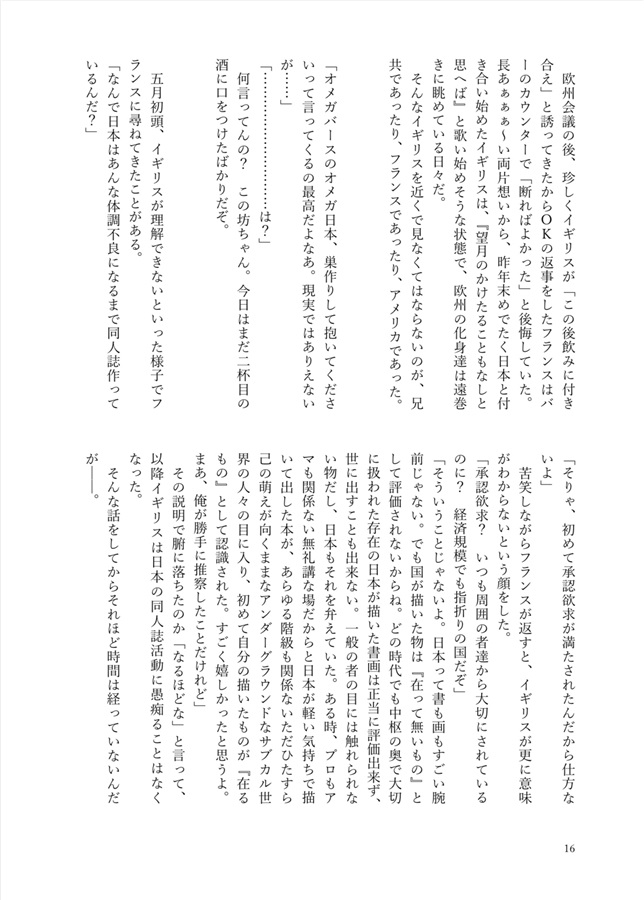 欧州会議の後、珍しくイギリスが「この後飲みに付き
合え」と誘ってきたからＯＫの返事をしたフランスはバ
ーのカウンターで「断ればよかった」と後悔していた。
長あぁぁぁ〜い両片想いから、昨年末めでたく日本と付
き合い始めたイギリスは、『望月のかけたることもなしと
思へば』と歌い始めそうな状態で、欧州の化身達は遠巻
きに眺めている日々だ。
　そんなイギリスを近くで見なくてはならないのが、兄
共であったり、フランスであったり、アメリカであった。
「オメガバースのオメガ日本、巣作りして抱いてくださ
いって言ってくるの最高だよなあ。現実ではありえない
が……」
「……………………………は？」
　何言ってんの？　この坊ちゃん。今日はまだ二杯目の
酒に口をつけたばかりだぞ。
　五月初頭、イギリスが理解できないといった様子でフ
ランスに尋ねてきたことがある。
「なんで日本はあんな体調不良になるまで同人誌作って
いるんだ？」
「そりゃ、初めて承認欲求が満たされたんだから仕方な
いよ」
　苦笑しながらフランスが返すと、イギリスが更に意味
がわからないという顔をした。
「承認欲求？　いつも周囲の者達から大切にされている
のに？　経済規模でも指折りの国だぞ」
「そういうことじゃないよ。日本って書も画もすごい腕
前じゃない。でも国が描いた物は『在って無いもの』と
して評価されないからね。どの時代でも中枢の奥で大切
に扱われた存在の日本が描いた書画は正当に評価出来ず、
世に出すことも出来ない。一般の者の目には触れられな
い物だし、日本もそれを弁えていた。ある時、プロもア
マも関係ない無礼講な場だからと日本が軽い気持ちで描
いて出した本が、あらゆる階級も関係ないただひたすら
己の萌えが向くままなアンダーグラウンドなサブカル世
界の人々の目に入り、初めて自分の描いたものが『在る
もの』として認識された。すごく嬉しかったと思うよ。
まあ、俺が勝手に推察したことだけれど」
　その説明で腑に落ちたのか「なるほどな」と言って、
以降イギリスは日本の同人誌活動に愚痴ることはなく
なった。
　そんな話をしてからそれほど時間は経っていないんだ
が――。
16